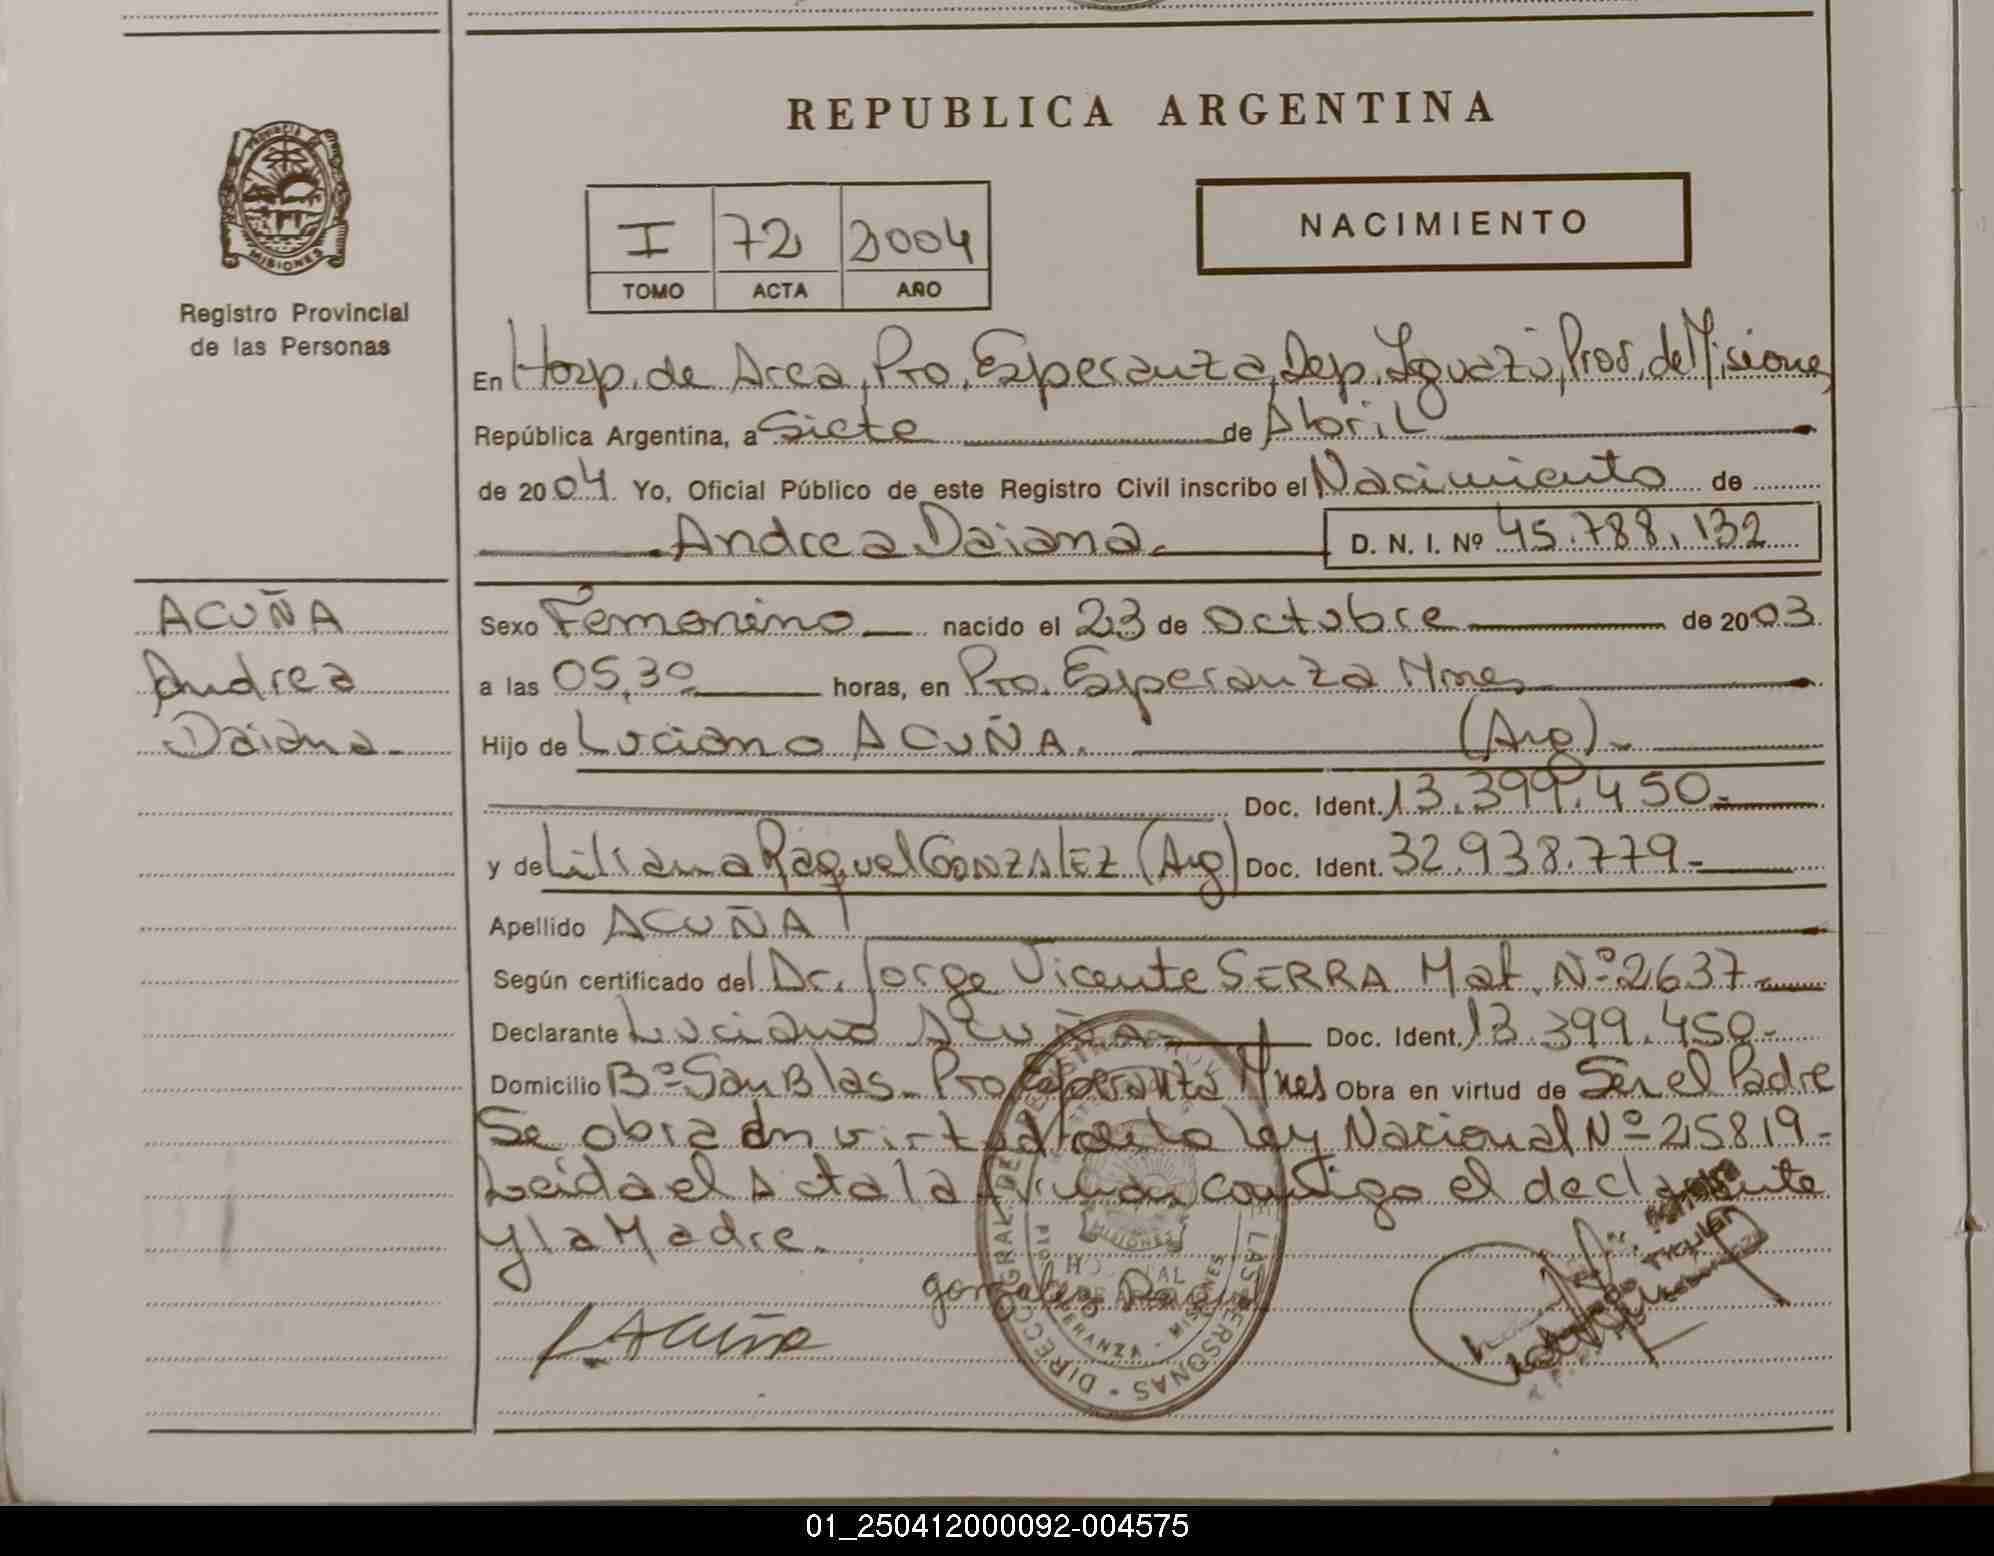 REPUBLICA ARGENTINA
PROVINCIA DE
MISIONES
Registro Provincial
de las Personas
I 72 2004
TOMO ACTA AÑO
NACIMIENTO
En Hosp. de Area, Pto. Esperanza, Dep. Iguazú, Prov. de Misiones
República Argentina, a Siete de Abril
de 2004. Yo, Oficial Público de este Registro Civil inscribo el Nacimiento de
Andrea Daiana. D. N. I. Nº 45.788.132
ACUÑA
Andrea
Daiana.
Sexo Femenino nacido el 23 de Octubre de 2003.
a las 05,30 horas, en Pto. Esperanza Mnes
Hijo de Luciano ACUÑA. (Arg).
Doc. Ident. 13.399.450.-
y de Liliana Raquel GONZALEZ (Arg) Doc. Ident. 32.938.779.-
Apellido ACUÑA
Según certificado del Dr. Jorge Vicente SERRA Mat. Nº 2637
Declarante Luciano ACUÑA Doc. Ident. 13.399.450.-
Domicilio Bº San Blas. Pto Esperanza Mnes Obra en virtud de Ser el Padre
Se obra en virtud de la ley Nacional Nº 25819-
Leida el Acta la firman conmigo el declarante
y la Madre.
gonzalez Raquel
L. ACUÑA
DIRECCION GRAL. DE LAS PERSONAS
HOSPITAL
ESPERANZA - MISIONES
01_250412000092-004575